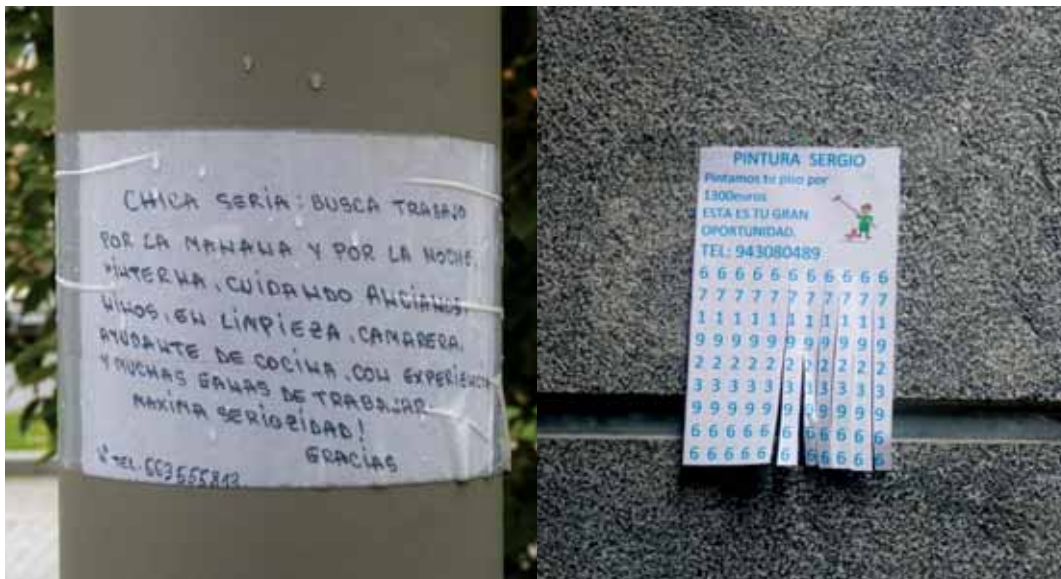 CHICA SERIA: BUSCA TRABAJO
POR LA MAÑANA Y POR LA NOCHE,
INTERNA, CUIDANDO ANCIANOS,
NIÑOS, EN LINPIEZA, CAMARERA,
AYUDANTE DE COCINA, CON EXPERIENCIA
Y MUCHAS GANAS DE TRABAJAR.
MAXIMA SERIOZIDAD!
GRACIAS
TEL.
PINTURA SERGIO
Pintamos tu piso por
1300euros
ESTA ES TU GRAN
OPORTUNIDAD.
TEL: 943080489
6 6 6 6 6 6 6 6 6 6 6
7 7 7 7 7 7 7 7 7 7 7
1 1 1 1 1 1 1 1 1 1 1
9 9 9 9 9 9 9 9 9 9 9
2 2 2 2 2 2 2 2 2 2 2
3 3 3 3 3 3 3 3 3 3 3
9 9 9 9 9 9 9 9 9 9 9
6 6 6 6 6 6 6 6 6 6 6
6 6 6 6 6 6 6 6 6 6 6